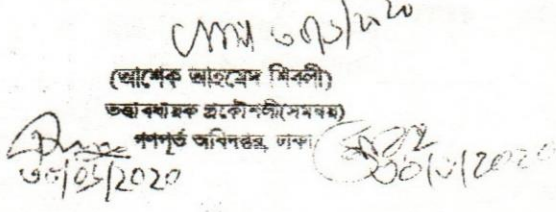 ৩০/১/২০২০
(আশেক আহমেদ শিবলী)
তত্ত্বাবধায়ক প্রকৌশলী(সমন্বয়)
গণপূর্ত অধিদপ্তর, ঢাকা
৩০/০১/2020
৩০/১/২০২০